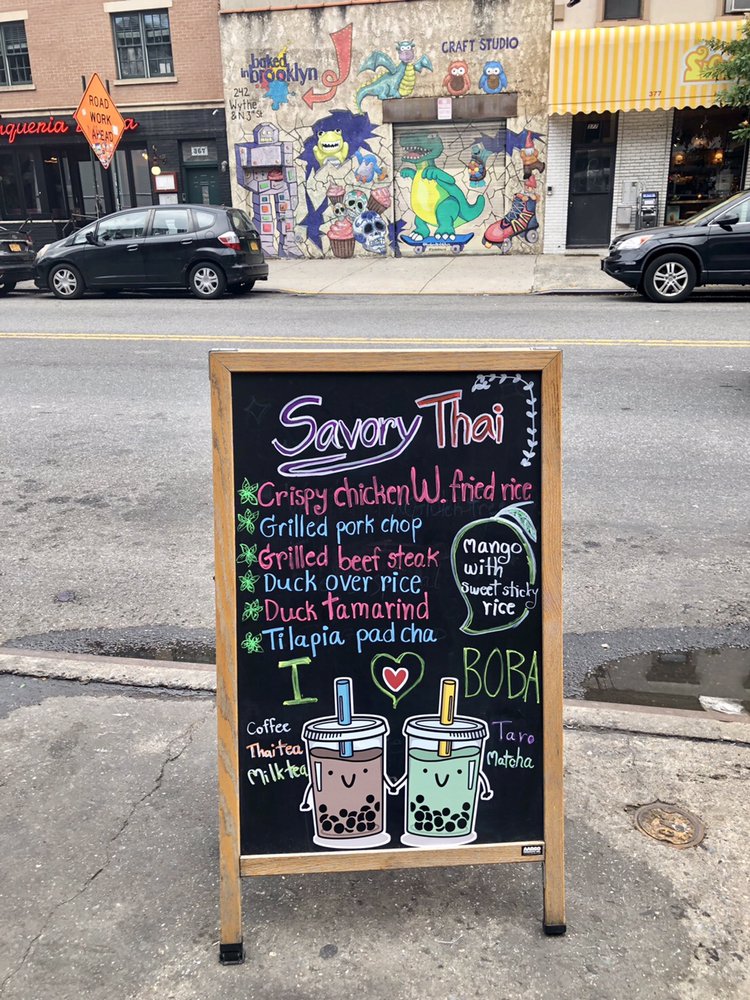 baked
in brooklyn
CRAFT STUDIO
242
Wythe
& N 3rd St
ROAD
WORK
AHEAD
queria
367
377
377
Savory Thai
Crispy chicken W. fried rice
Grilled pork chop
Grilled beef steak
Duck over rice
Duck tamarind
Tilapia pad cha
Mango
with
sweet sticky
rice
I BOBA
Coffee
Thai tea
Milk tea
Taro
Matcha